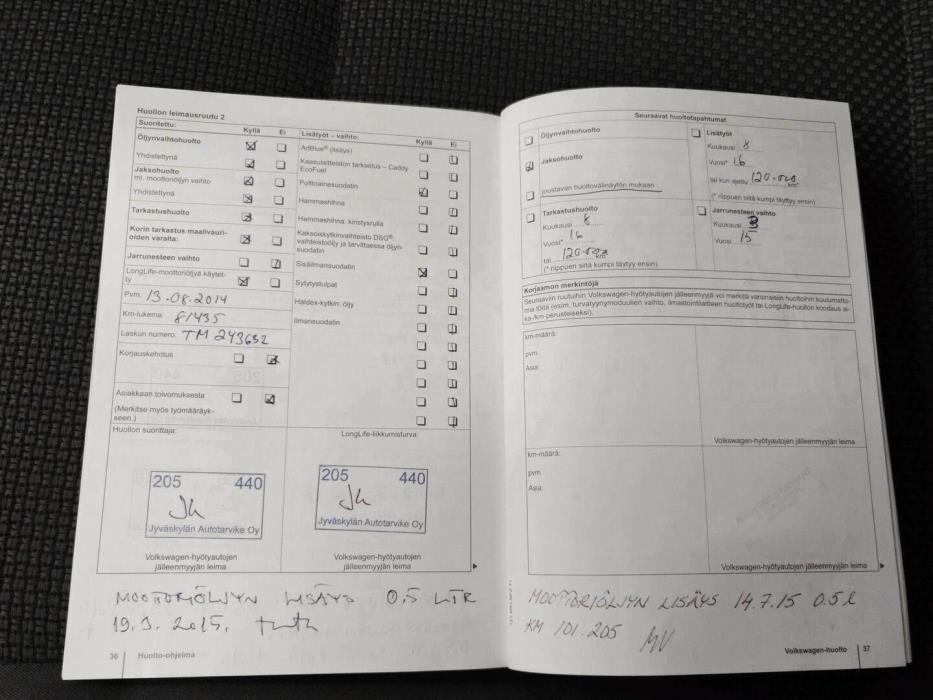 Huollon leimausruutu 2
Suoritettu: Kyllä Ei
Öljynvaihtohuolto
Yhdistettynä
Jaksohuolto
ml. moottoriöljyn vaihto
Yhdistettynä
Tarkastushuolto
Korin tarkastus maalivauri-
oiden varalta:
Jarrunesteen vaihto
LongLife-moottoriöljyä käytet-
ty
Pvm. 13.08.2014
Km-lukema: 81435
Laskun numero: TM 243652
Korjauskehotus
Asiakkaan toivomuksesta
(Merkitse myös työmääräyk-
seen.)
Lisätyöt – vaihto: Kyllä Ei
AdBlue® (lisäys)
Kaasulaitteiston tarkastus – Caddy
EcoFuel
Polttoainesuodatin
Hammashihna
Hammashihna: kiristysrulla
Kaksoiskytkinvaihteisto DSG®:
vaihteistoöljy ja tarvittaessa öljyn-
suodatin
Sisäilmansuodatin
Sytytystulpat
Haldex-kytkin: öljy
Ilmansuodatin
Huollon suorittaja:
205 440
Jyväskylän Autotarvike Oy
Volkswagen-hyötyautojen
jälleenmyyjän leima
LongLife-liikkumisturva:
205 440
Jyväskylän Autotarvike Oy
Volkswagen-hyötyautojen
jälleenmyyjän leima
MOOTTORIÖLJYN LISÄYS 0,5 LTR
19.3.2015.
36 Huolto-ohjelma
Seuraavat huoltotapahtumat
Öljynvaihtohuolto
Jaksohuolto
joustavan huoltovälinäytön mukaan
Lisätyöt
Kuukausi 8
Vuosi* 16
tai kun ajettu 120.000 km
(* riippuen siitä kumpi täyttyy ensin)
Tarkastushuolto
Kuukausi 8
Vuosi* 16
tai 120.000 km
(* riippuen siitä kumpi täyttyy ensin)
Jarrunesteen vaihto
Kuukausi 3
Vuosi 15
Korjaamon merkintöjä
Seuraaviin ruutuihin Volkswagen-hyötyautojen jälleenmyyjä voi merkitä varsinaisiin huoltoihin kuulumatto-
mia töitä (esim. turvatyynymoduulien vaihto, ilmastointilaitteen huoltotyöt tai LongLife-huollon koodaus ai-
ka-/km-perusteiseksi).
km-määrä:
pvm.
Asia:
Volkswagen-hyötyautojen jälleenmyyjän leima
km-määrä:
pvm.
Asia:
Volkswagen-hyötyautojen jälleenmyyjän leima
MOOTTORIÖLJYN LISÄYS 14.7.15 0.5 l
KM 101.205
Volkswagen-huolto 37